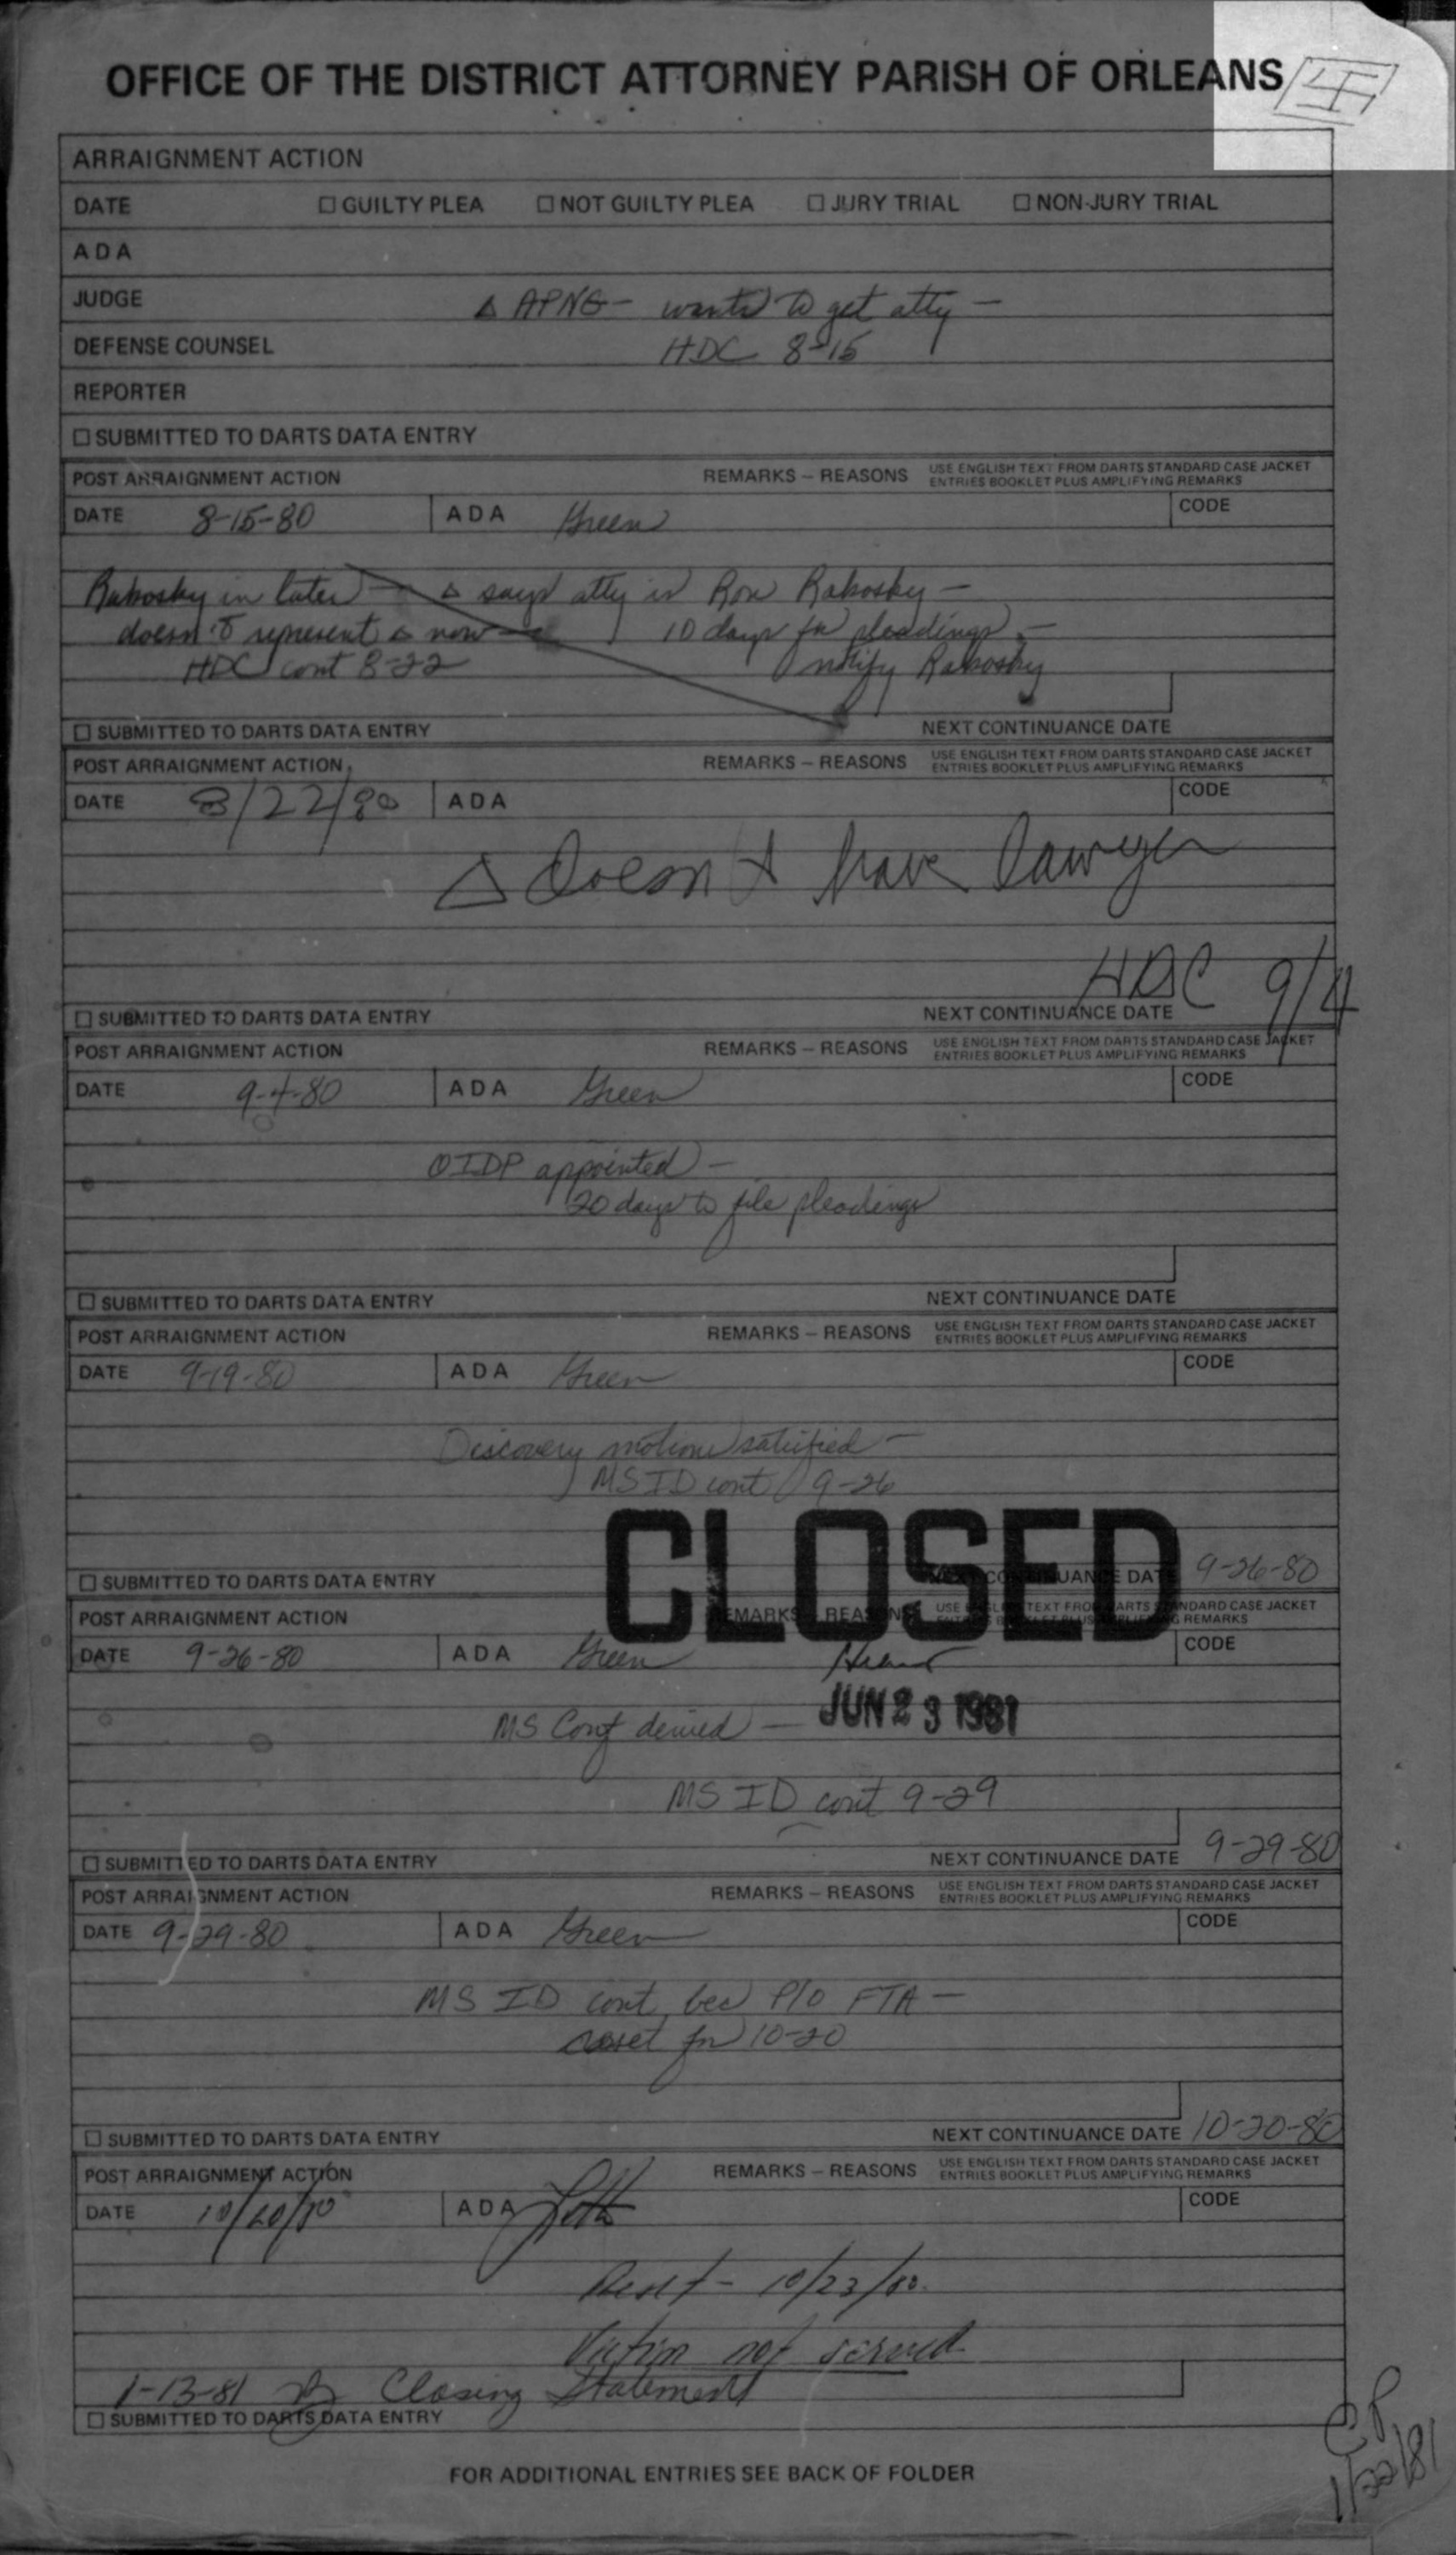 OFFICE OF THE DISTRICT ATTORNEY PARISH OF ORLEANS
ARRAIGNMENT ACTION
DATE ☐ GUILTY PLEA ☐ NOT GUILTY PLEA ☐ JURY TRIAL ☐ NON-JURY TRIAL
ADA
JUDGE
Δ APNG - wants to get atty -
DEFENSE COUNSEL HDC 8-15
REPORTER
☐ SUBMITTED TO DARTS DATA ENTRY
POST ARRAIGNMENT ACTION REMARKS – REASONS USE ENGLISH TEXT FROM DARTS STANDARD CASE JACKET
ENTRIES BOOKLET PLUS AMPLIFYING REMARKS
DATE 8-15-80 ADA Green CODE
Rakosky in later - Δ says atty is Ron Rakosky -
doesn't represent Δ now - 10 days for pleadings -
HDC cont 8-22 notify Rakosky
☐ SUBMITTED TO DARTS DATA ENTRY NEXT CONTINUANCE DATE
POST ARRAIGNMENT ACTION REMARKS – REASONS USE ENGLISH TEXT FROM DARTS STANDARD CASE JACKET
ENTRIES BOOKLET PLUS AMPLIFYING REMARKS
DATE 8/22/80 ADA CODE
Δ Doesn't have Lawyer
HDC 9/4
☐ SUBMITTED TO DARTS DATA ENTRY NEXT CONTINUANCE DATE
POST ARRAIGNMENT ACTION REMARKS – REASONS USE ENGLISH TEXT FROM DARTS STANDARD CASE JACKET
ENTRIES BOOKLET PLUS AMPLIFYING REMARKS
DATE 9-4-80 ADA Green CODE
OIDP appointed -
20 days to file pleadings
☐ SUBMITTED TO DARTS DATA ENTRY NEXT CONTINUANCE DATE
POST ARRAIGNMENT ACTION REMARKS – REASONS USE ENGLISH TEXT FROM DARTS STANDARD CASE JACKET
ENTRIES BOOKLET PLUS AMPLIFYING REMARKS
DATE 9-19-80 ADA Green CODE
Discovery motion satisfied -
MS ID cont 9-26
CLOSED
☐ SUBMITTED TO DARTS DATA ENTRY NEXT CONTINUANCE DATE 9-26-80
POST ARRAIGNMENT ACTION REMARKS – REASONS USE ENGLISH TEXT FROM DARTS STANDARD CASE JACKET
ENTRIES BOOKLET PLUS AMPLIFYING REMARKS
DATE 9-26-80 ADA Green CODE
JUN 23 1981
MS Conf denied -
MS ID cont 9-29
☐ SUBMITTED TO DARTS DATA ENTRY NEXT CONTINUANCE DATE 9-29-80
POST ARRAIGNMENT ACTION REMARKS – REASONS USE ENGLISH TEXT FROM DARTS STANDARD CASE JACKET
ENTRIES BOOKLET PLUS AMPLIFYING REMARKS
DATE 9-29-80 ADA Green CODE
MS ID cont bec P/O FTA -
reset for 10-20
☐ SUBMITTED TO DARTS DATA ENTRY NEXT CONTINUANCE DATE 10-20-80
POST ARRAIGNMENT ACTION REMARKS – REASONS USE ENGLISH TEXT FROM DARTS STANDARD CASE JACKET
ENTRIES BOOKLET PLUS AMPLIFYING REMARKS
DATE 10/20/80 ADA CODE
Reset - 10/23/80.
Victim not served
1-13-81 Closing Statement
☐ SUBMITTED TO DARTS DATA ENTRY
CP
1/22/81
FOR ADDITIONAL ENTRIES SEE BACK OF FOLDER